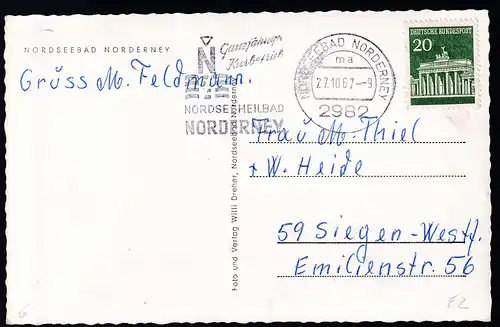 NORDSEEBAD NORDERNEY
Grüss M. Feldmann.
N
Ganzjähriger
Kurbetrieb
NORDSEEHEILBAD
NORDERNEY
NORDSEEBAD NORDERNEY
ma
27.10.67-9
2982
DEUTSCHE BUNDESPOST
20
Foto und Verlag Willi Dreher, Nordseebad Norderney
Frau M. Thiel
+ W. Heide
59 Siegen-Westf.
Emilienstr. 56
6
F2